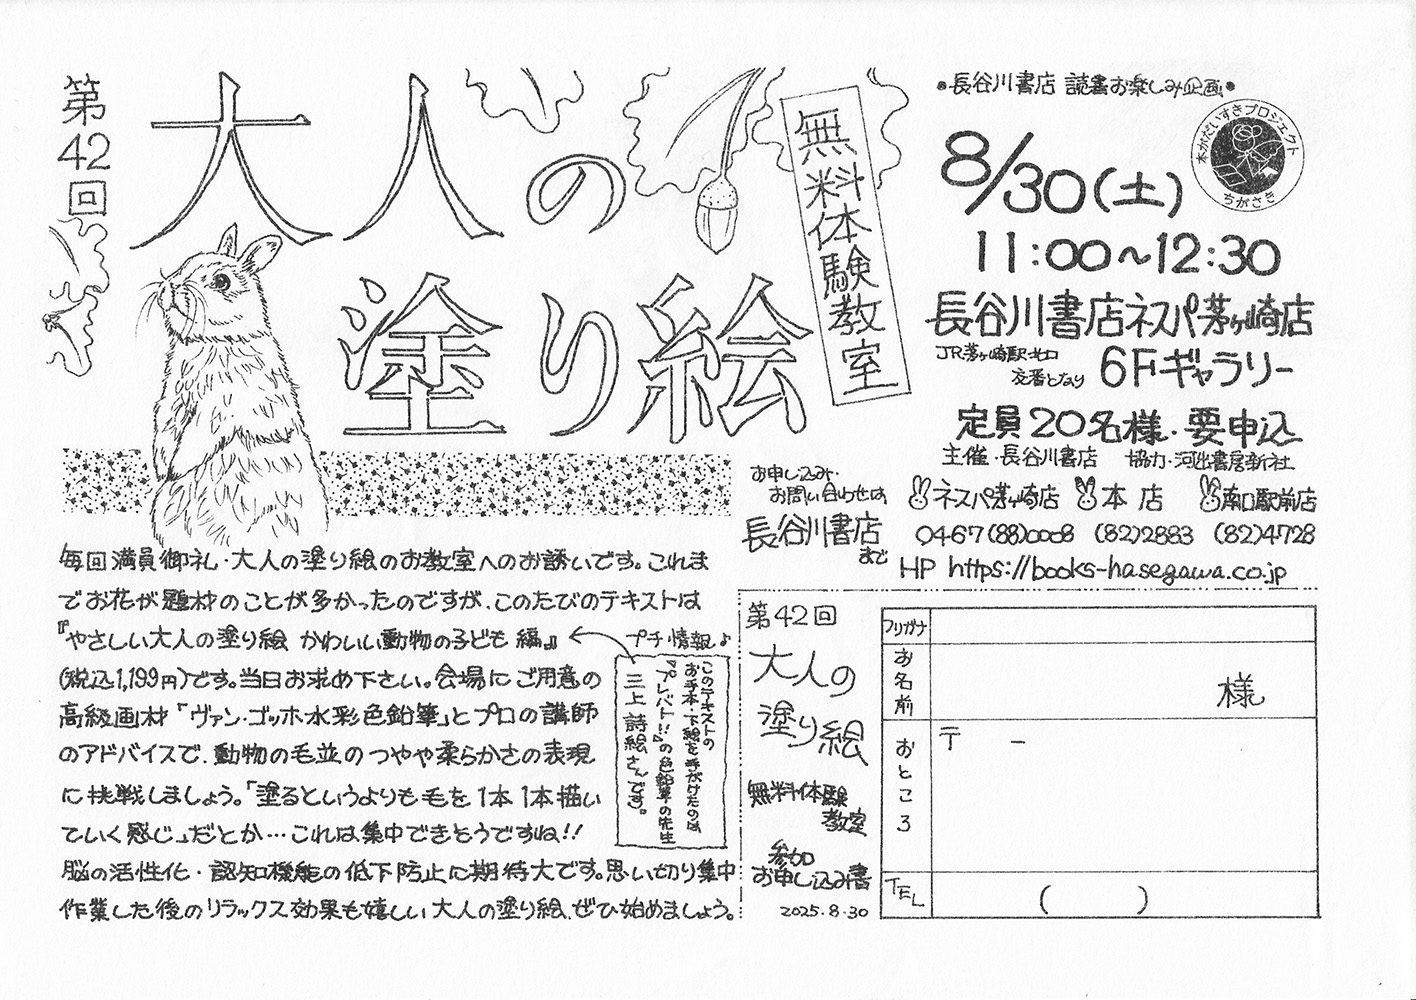 第42回
大人の
塗り絵
無料体験教室
•長谷川書店 読書お楽しみ企画•
本がだいすきプロジェクト
ちがさき
8/30(土)
11:00~12:30
長谷川書店ネスパ茅ヶ崎店
JR茅ヶ崎駅北口
交番となり
6Fギャラリー
定員20名様・要申込
主催・長谷川書店 協力・河出書房新社
お申し込み・
お問い合わせは
長谷川書店
まで
ネスパ茅ヶ崎店 本店 南口駅前店
0467(88)0008 (82)2883 (82)4728
HP https://books-hasegawa.co.jp
毎回満員御礼・大人の塗り絵のお教室へのお誘いです。これま
でお花が題材のことが多かったのですが、このたびのテキストは
『やさしい大人の塗り絵 かわいい動物の子ども編』
(税込1,199円)です。当日お求め下さい。会場にご用意の
高級画材「ヴァン・ゴッホ水彩色鉛筆」とプロの講師
のアドバイスで、動物の毛並のつやや柔らかさの表現
に挑戦しましょう。「塗るというよりも毛を1本1本描い
ていく感じ」だとか…これは集中できそうですね!!
脳の活性化・認知機能の低下防止に期待大です。思い切り集中
作業した後のリラックス効果も嬉しい大人の塗り絵、ぜひ始めましょう。
プチ情報♪
このテキストの
お手本・下絵を手がけたのは
『プレバト!!』の色鉛筆の先生
三上詩絵さんです。
第42回
大人の
塗り絵
無料体験
教室
参加
お申し込み書
2025.8.30
フリガナ
お名前
様
おところ
〒 -
TEL
( )